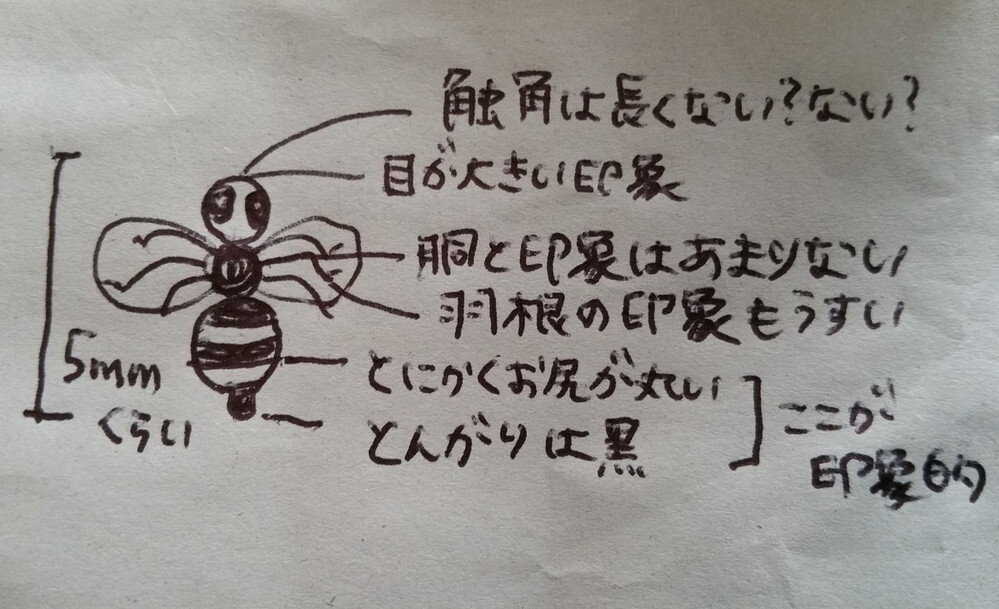 触角は長くない?ない?
目が大きい印象
胴と印象はあまりない
羽根の印象もうすい
5mm
くらい
とにかくお尻が丸い
とんがりは黒
ここが
印象的